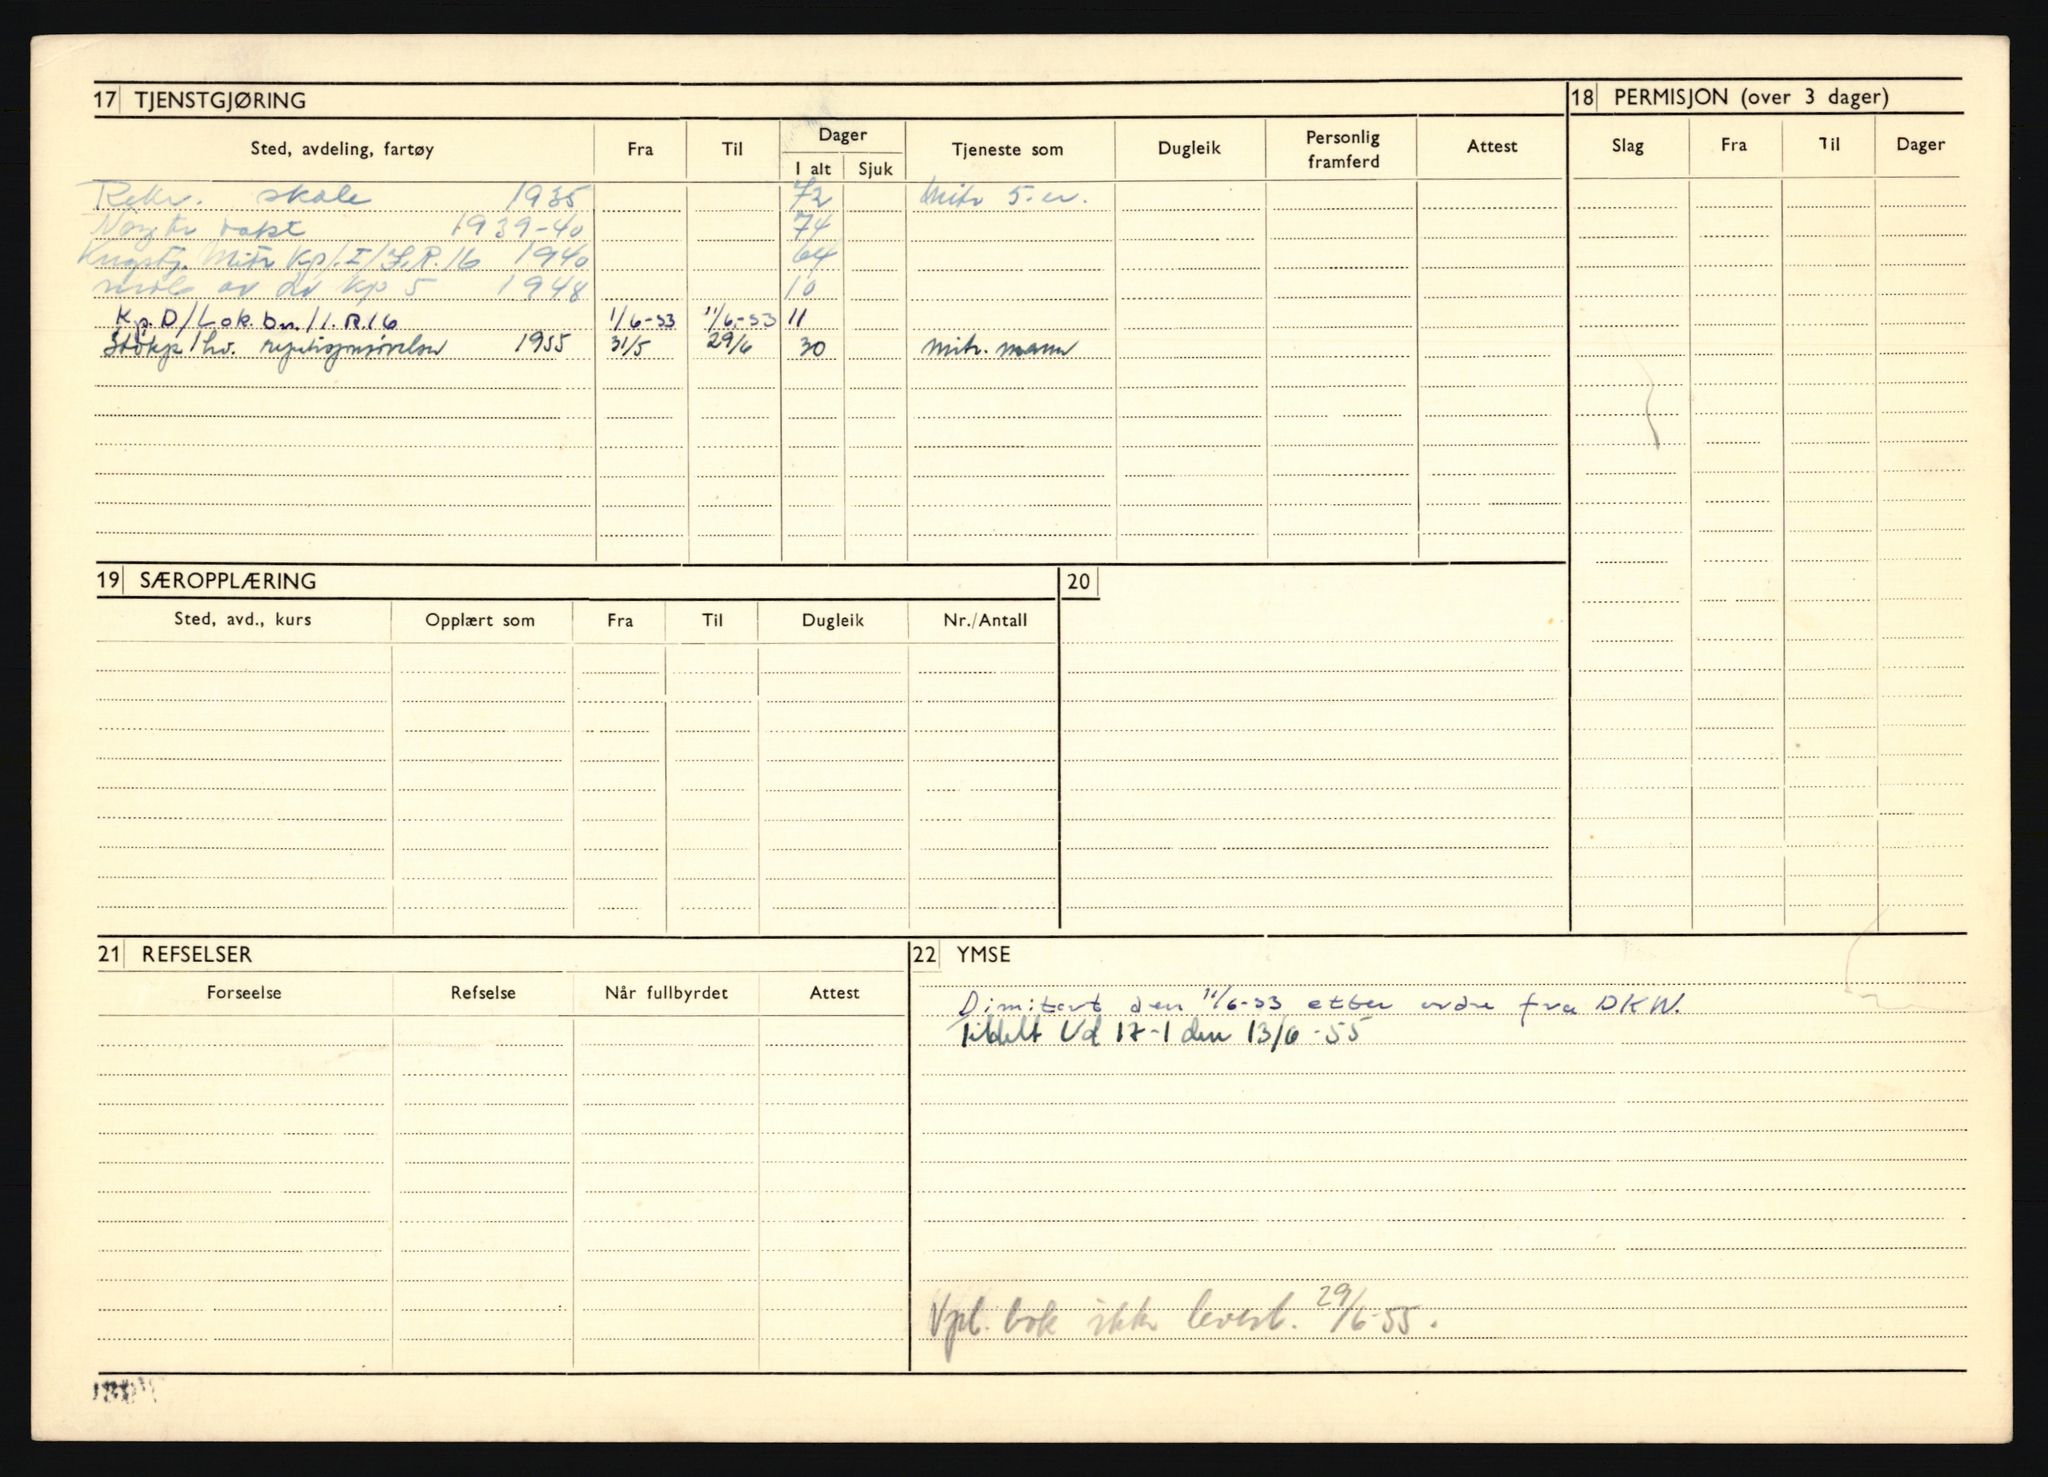 17 TJENSTGJØRING
Sted, avdeling, fartøy Fra Til Dager I alt Sjuk Tjeneste som Dugleik Personlig framferd Attest
Rekr. skole 1935 72 Mitr 5.er.
Nøytr vakt 1939-40 74
Krigstj. Mitr Kp/.I/I.R.16 1940 64
av dv Kp 5 1948 10
Kp. D/Lok.bn./I.R.16 1/6-53 11/6-53 11
hv. repetisjonsøvelse 1955 31/5 29/6 30 mitr. mann
18 PERMISJON (over 3 dager)
Slag Fra Til Dager
19 SÆROPPLÆRING
Sted, avd., kurs Opplært som Fra Til Dugleik Nr./Antall
20
21 REFSELSER
Forseelse Refselse Når fullbyrdet Attest
22 YMSE
Dimitert den 11/6-53 etter ordre fra DKW.
Tildelt Vd 17-1 den 13/6-55
Vpl. bok ikke levert. 29/6-55.